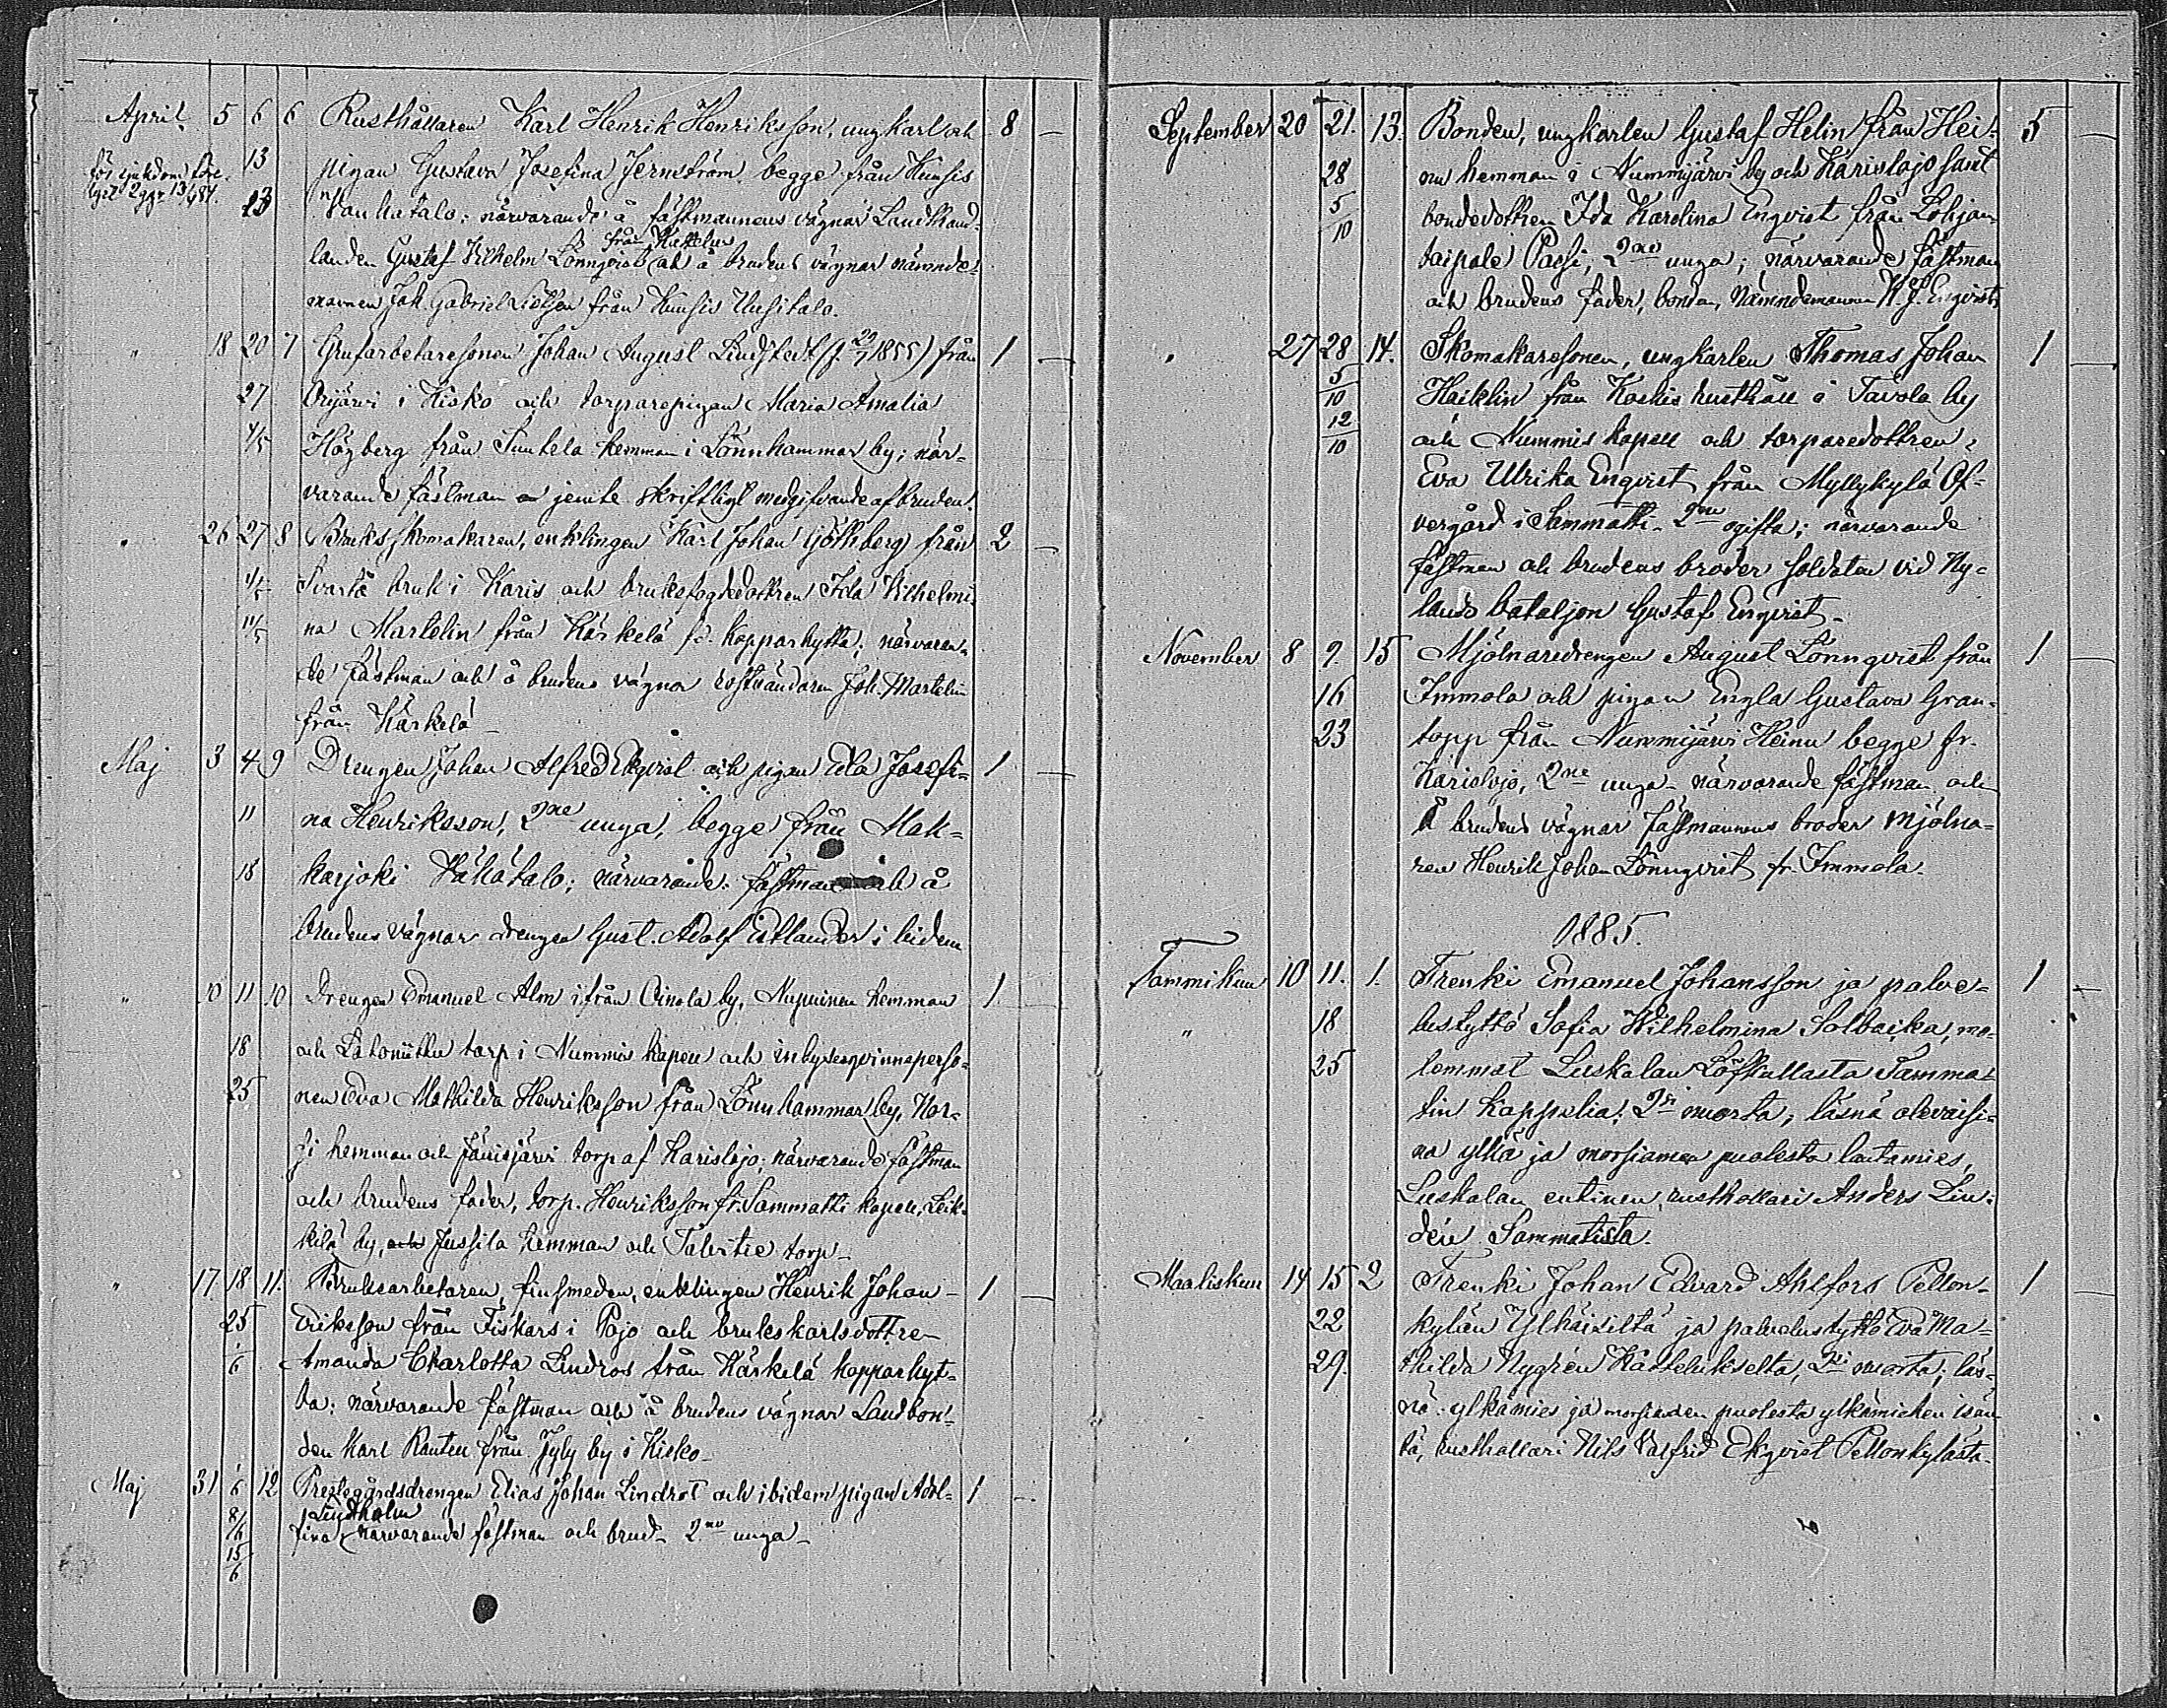 April 5 6 6 Rusthållaren Karl Henrik Henriksson, ungkarl och 8 —
13 pigan Gustava Josefina Jernström, begge från Kuusis
för sjukdom
lyst 2 ggr 13/4 84.
23 Vanhatalo; närvarande å fästmannens vägnar Landthand-
från Kettelus
landen Gustaf Wilhelm Lönnqvist och å brudens vägnar nämnde-
mannen Joh. Gabriel från Kuusis Uusitalo.
" 18 20 7 Grufarbetaresonen Johan August Lindstedt (f. 29/7 1855) från 1 —
27 Orijärvi i Kisko och torparepigan Maria Amalia
4/5 Högberg från Suntela hemman i Lönnhammar by; när-
varande fästman jemte skriftligt medgifvande af bruden.
" 26 27 8 Bruksskomakaren, enklingen Karl Johan Göthberg från 2 —
4/5 Svartå bruk i Karis och bruksfogdedottren Ida Wilhelmi-
11/5 na Martelin från Kärkelä fd. Kopparhytta; närvaran-
de fästman och å brudens vägnar Joh. Martelin
från Kärkelä —
Maj 3 4 9 Drengen Johan Alfred Ekqvist och pigan Eda Josefi- 1 —
11 na Henriksson, 2ne unga, begge från Mak-
18 karjoki Vähätalo; närvarande: fästman och å
brudens vägnar drengen Gust. Adolf Estlander ibidem
" 10 11 10 Drengen Emanuel Alm ifrån Oinola by, Nupuinen hemman 1
18 och Latoniittu torp i Nummis kapell och inhysesqvinnsperso-
25 nen Eva Mathilda Henriksson från Lönnhammar by, Hor-
si hemman och Jänisjärvi torp af Karislojo; närvarande fästman
och brudens fader, torp. Henriksson fr. Sammatti kapell, Leik-
kilä by, och Jussila hemman och Talvitie torp —
" 17 18 11. Bruksarbetaren, finsmeden, enklingen Henrik Johan — 1 —
25 Eriksson från Fiskars i Pojo och brukskarlsdottren
1/6 Amanda Charlotta Lindros från Kärkelä kopparhyt-
ta; närvarande fästman och å brudens vägnar Landbon-
den Karl Rauten från Jyly by i Kisko —
Maj 31 1/6 12 Prestegårdsdrengen Elias Johan Lindrot och ibidem pigan Adol- 1 —
Lindholm
8/6 fina närvarande fästman och brud — 2ne unga —
15/6
September 20 21. 13. Bonden, ungkarlen Gustaf Helin från Hei- 5 —
28 nu hemman i Nummijärvi by och Karislojo samt
5/10 bondedottren Ida Karolina Engvist från Lohjan-
taipale Paesi, 2ne unga; närvarande fästman
och brudens fader, bonden, Nämndemannen K. J. Engvist.
" 27 28 14. Skomakaresonen, ungkarlen Thomas Johan 1 —
5/10 Haiklin från Koskis rusthåll i Tavola by
12/10 och Nummis kapell och torparedottren
Eva Ulrika Engvist från Myllykylä Öf-
vergård i Sammatti — 2ne ogifta; närvarande
fästman och brudens broder soldaten vid Ny-
lands bataljon Gustaf Engvist —
November 8 9. 15 Mjölnaredrengen August Lönnqvist från 1 —
16 Immola och pigan Engla Gustava Gran-
23 topp från Nummijärvi Heinu begge fr.
Karislojo, 2ne unga — närvarande fästman och
å brudens vägnar fästmannens broder mjölna-
ren Henrik Johan Lönnqvist fr. Immola.
1885.
Tammikuu 10 11. 1. Trenki Emanuel Johansson ja palve- 1 —
" 18 lustyttö Sofia Wilhelmina Solbacka, mo-
25 lemmat Luskalan Löfkullasta Samma-
tin Kappelia. 2si nuorta; läsnä olevaisi-
na ylkä ja morsiamen puolesta lautamies,
Luskalan entinen rusthollari Anders Lin-
dén Sammatista.
Maaliskuu 14 15 2 Trenki Johan Edvard Ahlfors Pellon- 1 —
22 kylän Ylhäisiltä ja palvelustyttö Eva Ma-
29. thilda Nygrén Kattelukselta, 2si nuorta; läs-
nä: ylkämies ja morsianden puolesta ylkämiehen isän-
tä, rusthollari Nils Valfrid Ekqvist Pellonkylästä —